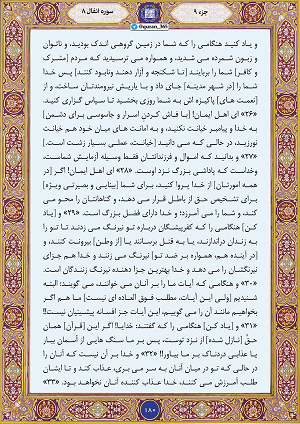 جزء ۹
@quran_365
سوره انفال ۸
و یاد کنید هنگامی را که شما در زمین گروهی اندک بودید، و ناتوان
و زبون شمرده می شدید، و همواره می ترسیدید که مردم [مشرک
و کافر] شما را بربایند [تا شکنجه و آزار دهند ونابود کنند] پس خدا
شما را [در شهر مدینه] جای داد و با یاریش نیرومندتان ساخت، و از
[نعمت های] پاکیزه اش به شما روزی بخشید تا سپاس گزاری کنید.
«۲۶» ای اهل ایمان! [با فاش کردن اسرار و جاسوسی برای دشمن]
به خدا و پیامبر خیانت نکنید، و به امانت های میان خود هم خیانت
نورزید، در حالی که می دانید [خیانت، عملی بسیار زشت است.]
«۲۷» و بدانید که اموال و فرزندانتان فقط وسیله آزمایش شماست،
وخداست که پاداشی بزرگ نزد اوست. «۲۸» ای اهل ایمان! اگر [در
همه امورتان] از خدا پروا کنید، برای شما [بینایی و بصیرتی ویژه]
برای تشخیص حق از باطل قرار می دهد، و گناهانتان را محو می
کند، و شما را می آمرزد؛ و خدا دارای فضل بزرگ است. «۲۹» و [یاد
کن] هنگامی را که کفرپیشگان درباره تو نیرنگ می زدند تا تو را
به زندان دراندازند، یا به قتل برسانند یا [از وطن] بیرونت کنند، و
[در آینده هم، همواره بر ضد تو] نیرنگ می زنند و خدا هم جزای
نیرنگشان را می دهد و خدا بهترین جزا دهنده نیرنگ زنندگان است.
«۳۰» و هنگامی که آیات ما را بر آنان می خوانند، می گویند: البته
شنیدیم [ولی این آیات، مطلب فوق العاده ای نیست] ما هم اگر
بخواهیم مانند آن را می گوییم، این آیات جز افسانه پیشینیان نیست!!
«۳۱» و [یاد کن] هنگامی را که گفتند: خدایا! اگر این [قرآن] همان
حقّ [نازل شده] از نزد توست، پس بر ما سنگ هایی از آسمان ببار
یا عذابی دردناک بر ما بیاور!! «۳۲» و خدا بر آن نیست که آنان را
در حالی که تو در میان آنان به سر می بری، عذاب کند و تا ایشان
طلب آمرزش می کنند، خدا عذاب کننده آنان نخواهد بود. «۳۳»
۱۸۰